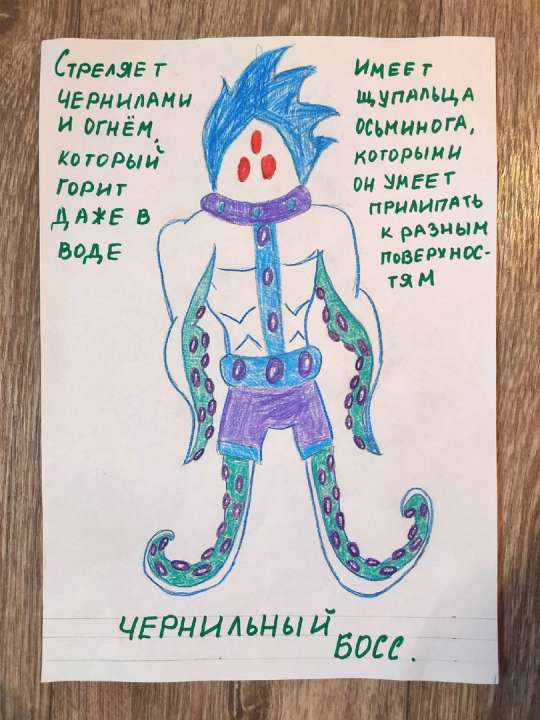 Стреляет
чернилами
и огнём,
который
горит
даже в
воде
Имеет
щупальца
осьминога,
которыми
он умеет
прилипать
к разным
поверхнос-
тям
Чернильный
босс.